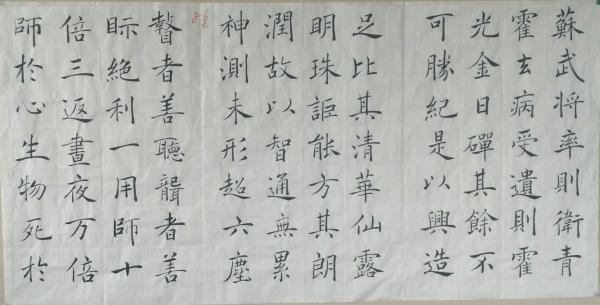 蘇武将率則衛青
霍去病受遺則霍
光金日磾其餘不
可勝紀是以興造
足比其清華仙露
明珠詎能方其朗
潤故以智通無累
神測未形超六塵
瞽者善聽聾者善
眎絕利一用師十
倍三返晝夜万倍
師於心生物死於